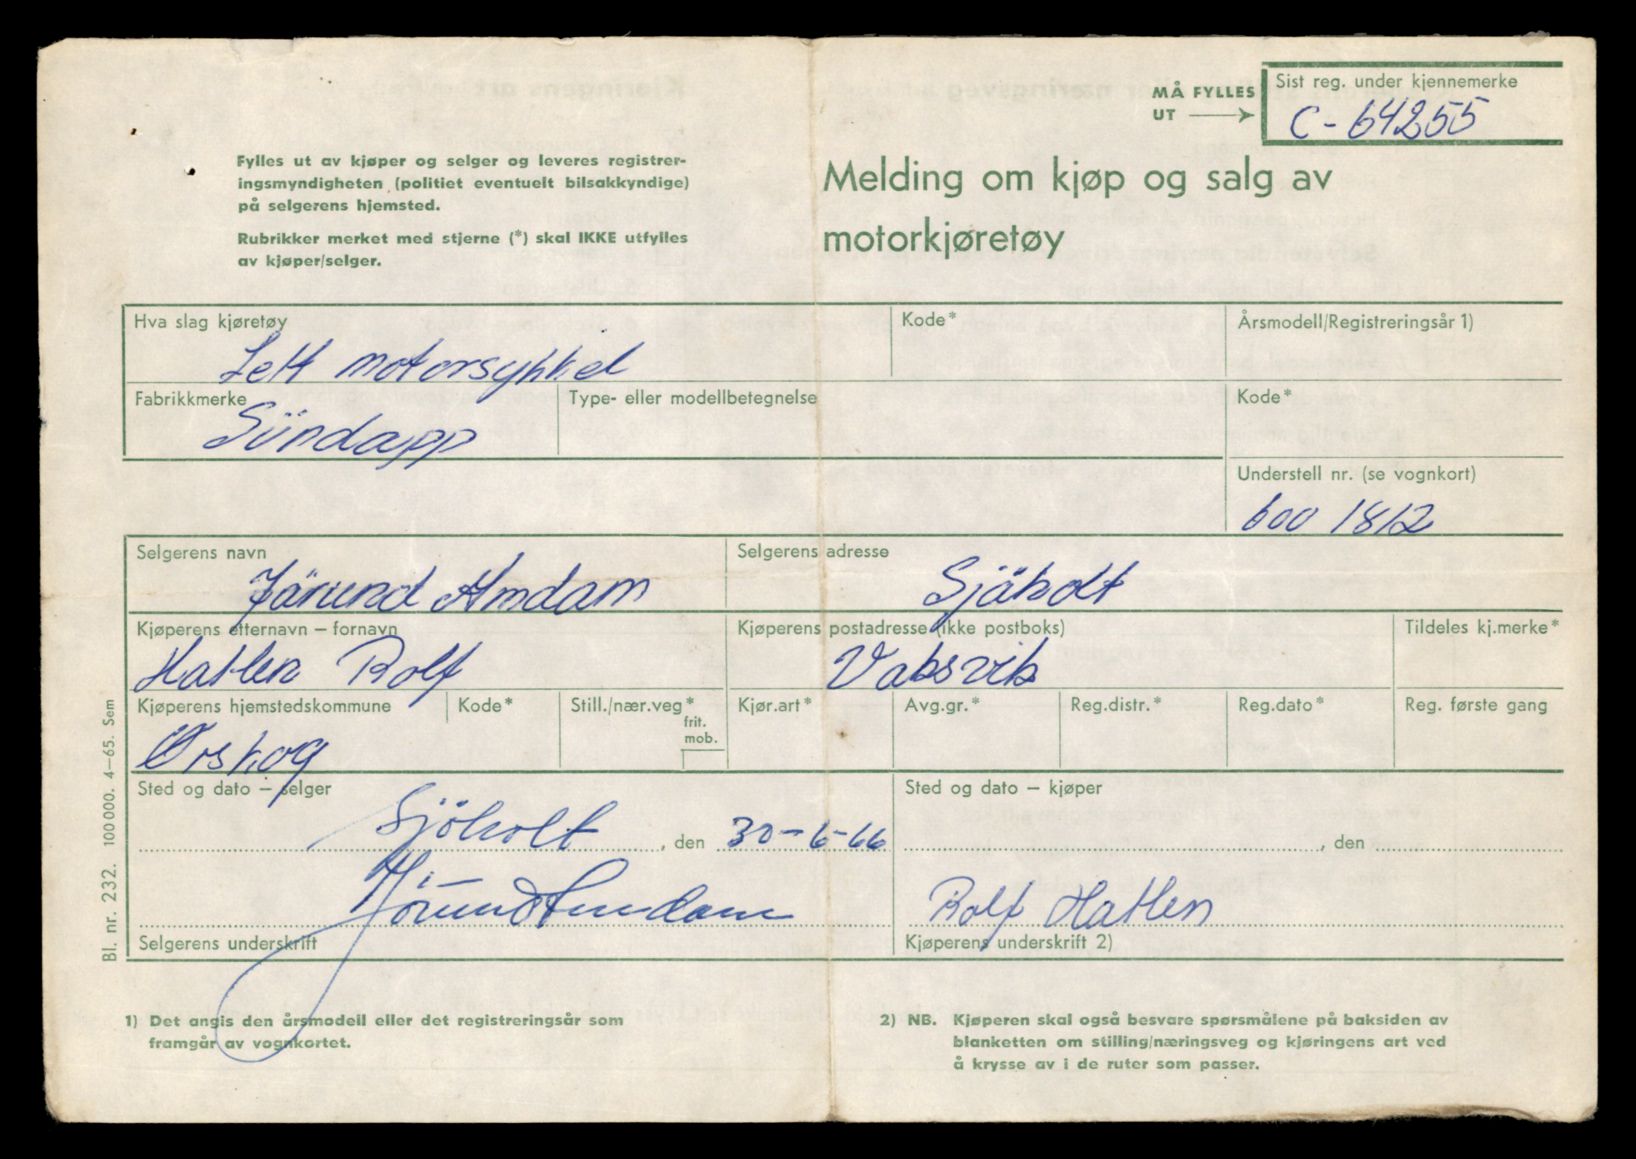 MÅ FYLLES
UT
Sist reg. under kjennemerke
C-64255
Fylles ut av kjøper og selger og leveres registrer-
ingsmyndigheten (politiet eventuelt bilsakkyndige)
på selgerens hjemsted.
Rubrikker merket med stjerne (*) skal IKKE utfylles
av kjøper/selger.
Melding om kjøp og salg av
motorkjøretøy
Hva slag kjøretøy
Lett motorsykkel
Kode*
Årsmodell/Registreringsår 1)
Fabrikkmerke
Sündapp
Type- eller modellbetegnelse
Kode*
Understell nr. (se vognkort)
600 1812
Selgerens navn
Jörund Amdam
Selgerens adresse
Sjöholt
Kjøperens etternavn – fornavn
Hatlen Rolf
Kjøperens postadresse (ikke postboks)
Vatsvik
Tildeles kj.merke*
Kjøperens hjemstedskommune
Ørskog
Kode*
Still./nær.veg*
frit.
mob.
Kjør.art*
Avg.gr.*
Reg.distr.*
Reg.dato*
Reg. første gang
Sted og dato – selger
Sjöholt , den 30-6-66
Jörund Amdam
Selgerens underskrift
Sted og dato – kjøper
, den
Rolf Hatlen
Kjøperens underskrift 2)
Bl. nr. 232. 100 000. 4–65. Sem
1) Det angis den årsmodell eller det registreringsår som
framgår av vognkortet.
2) NB. Kjøperen skal også besvare spørsmålene på baksiden av
blanketten om stilling/næringsveg og kjøringens art ved
å krysse av i de ruter som passer.